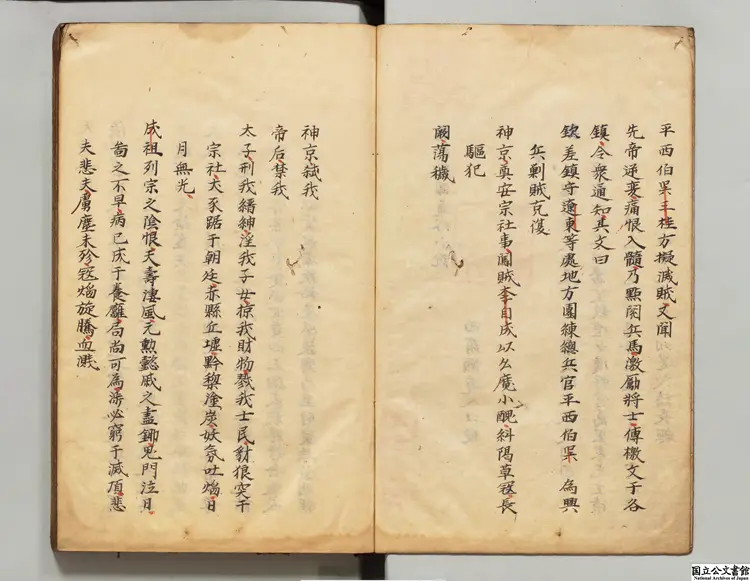 平西伯吴三桂方擬滅賊又聞
先帝遭变痛恨入髓乃點閱兵馬激勵將士傳檄文于各
鎮令衆通知其文曰
欽差鎮守遼東等處地方團練總兵官平西伯吴 為興
兵剿賊克復
神京奠安宗社事聞賊李自成以幺魔小醜糾陷草寇長
驅犯
闕蕩穢
神京弑我
帝后禁我
太子刑我縉紳淫我子女掠我財物戮我士民豺狼突于
宗社犬豕踞于朝廷赤縣丘墟黔黎塗炭妖氛吐焰日
月無光
成祖列宗之陰恨天壽淒風元勲懿戚之盡鋤鬼門泣日
啚之不早病已成于養癰局尚可為涕必窮于滅頂悲
夫悲夫虜塵未殄寇焰旋騰血濺
国立公文書館
National Archives of Japan